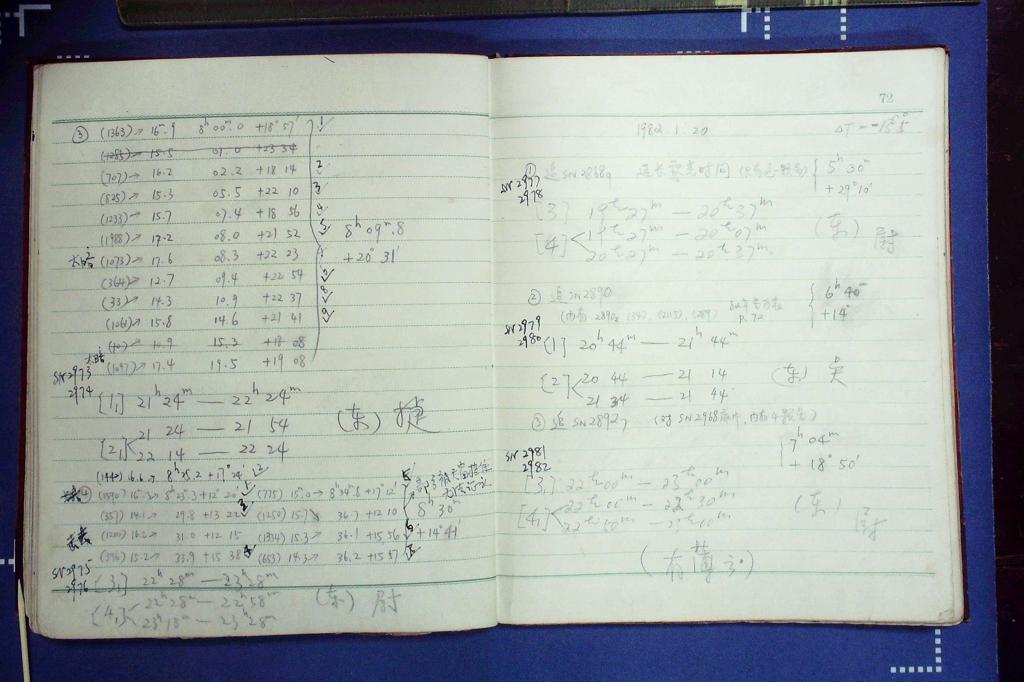 ③ (1363)→ 16.9 8ʰ00ᵐ.0 +18°57′ 1✓
(1285)→ 15.5 01.0 +23 34
(707)→ 16.2 02.2 +18 14 2
(825)→ 15.3 05.5 +22 10 3
(1233)→ 15.7 07.4 +18 56
(1988)→ 17.2 08.0 +21 52
8ʰ09ᵐ.8
太暗 (1073)→ 17.6 08.3 +22 23
+20°31′
(364)→ 12.7 09.4 +22 54
(33)→ 14.3 10.9 +22 37 8
(1061)→ 15.8 14.6 +21 41 9
(40)→ 10.9 15.3 +18 08
太暗 (1097)→ 17.4 19.5 +19 08
SN2973
2974
[1] 21ʰ24ᵐ — 22ʰ24ᵐ
[2] 21 24 — 21 54
22 14 — 22 24
(东) 捷
(1442) 16.6→ 8ʰ25.2 +17°24′
④ (1590) 16.3→ 8ʰ25.3 +12°20′ (775) 15.0→ 8ʰ34ᵐ.8 +17°12′
(357) 14.1→ 29.8 +13 22 (1250) 15.7 36.7 +12 10
8ʰ30ᵐ
(1200) 16.2→ 31.0 +12 15 (1334) 15.3→ 36.1 +15 56
+14°41′
(396) 15.2→ 33.9 +15 38 (653) 14.3→ 36.2 +15 57
SN2975
2976
[3] 22ʰ28ᵐ — 23ʰ28ᵐ
[4] 22ʰ28ᵐ — 22ʰ58ᵐ
23ʰ18ᵐ — 23ʰ28ᵐ
(东) 尉
72
1982.1.20 ΔT=-15ˢ.5
① 追SN2868 延长露光时间
5ʰ30ᵐ
+29°10′
SN2977
2978
[3] 19ʰ37ᵐ — 20ʰ37ᵐ
[4] 19ʰ37ᵐ — 20ʰ07ᵐ
20ʰ27ᵐ — 20ʰ37ᵐ
(东) 尉
② 追SN2890
6ʰ40ᵐ
+14°
P.72
SN2979
2980
[1] 20ʰ44ᵐ — 21ʰ44ᵐ
[2] 20 44 — 21 14
21 34 — 21 44
(东) 吴
③ 追SN2892 (对SN2968底片,内有4颗)
7ʰ04ᵐ
+18°50′
SN2981
2982
[3] 22ʰ00ᵐ — 23ʰ00ᵐ
[4] 22ʰ00ᵐ — 22ʰ30ᵐ
22ʰ50ᵐ — 23ʰ00ᵐ
(东) 尉
(有薄云)